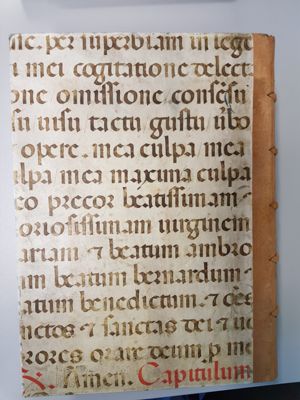 se. per superbiam in lege
u mei cogitatione delect
one omissione consēsu
su uisu tactu gustu ubo
opere. mea culpa mea
ulpa mea maxima culpa
eo precor beatissimam
oriosissimam uirginem
ariam ⁊ beatum ambro
um beatum bernardum ⁊
atum benedictum. ⁊ oēs
nctos ⁊ sanctas dei ⁊ uo
rores orate deum p me
℟. Amen. Capitulum